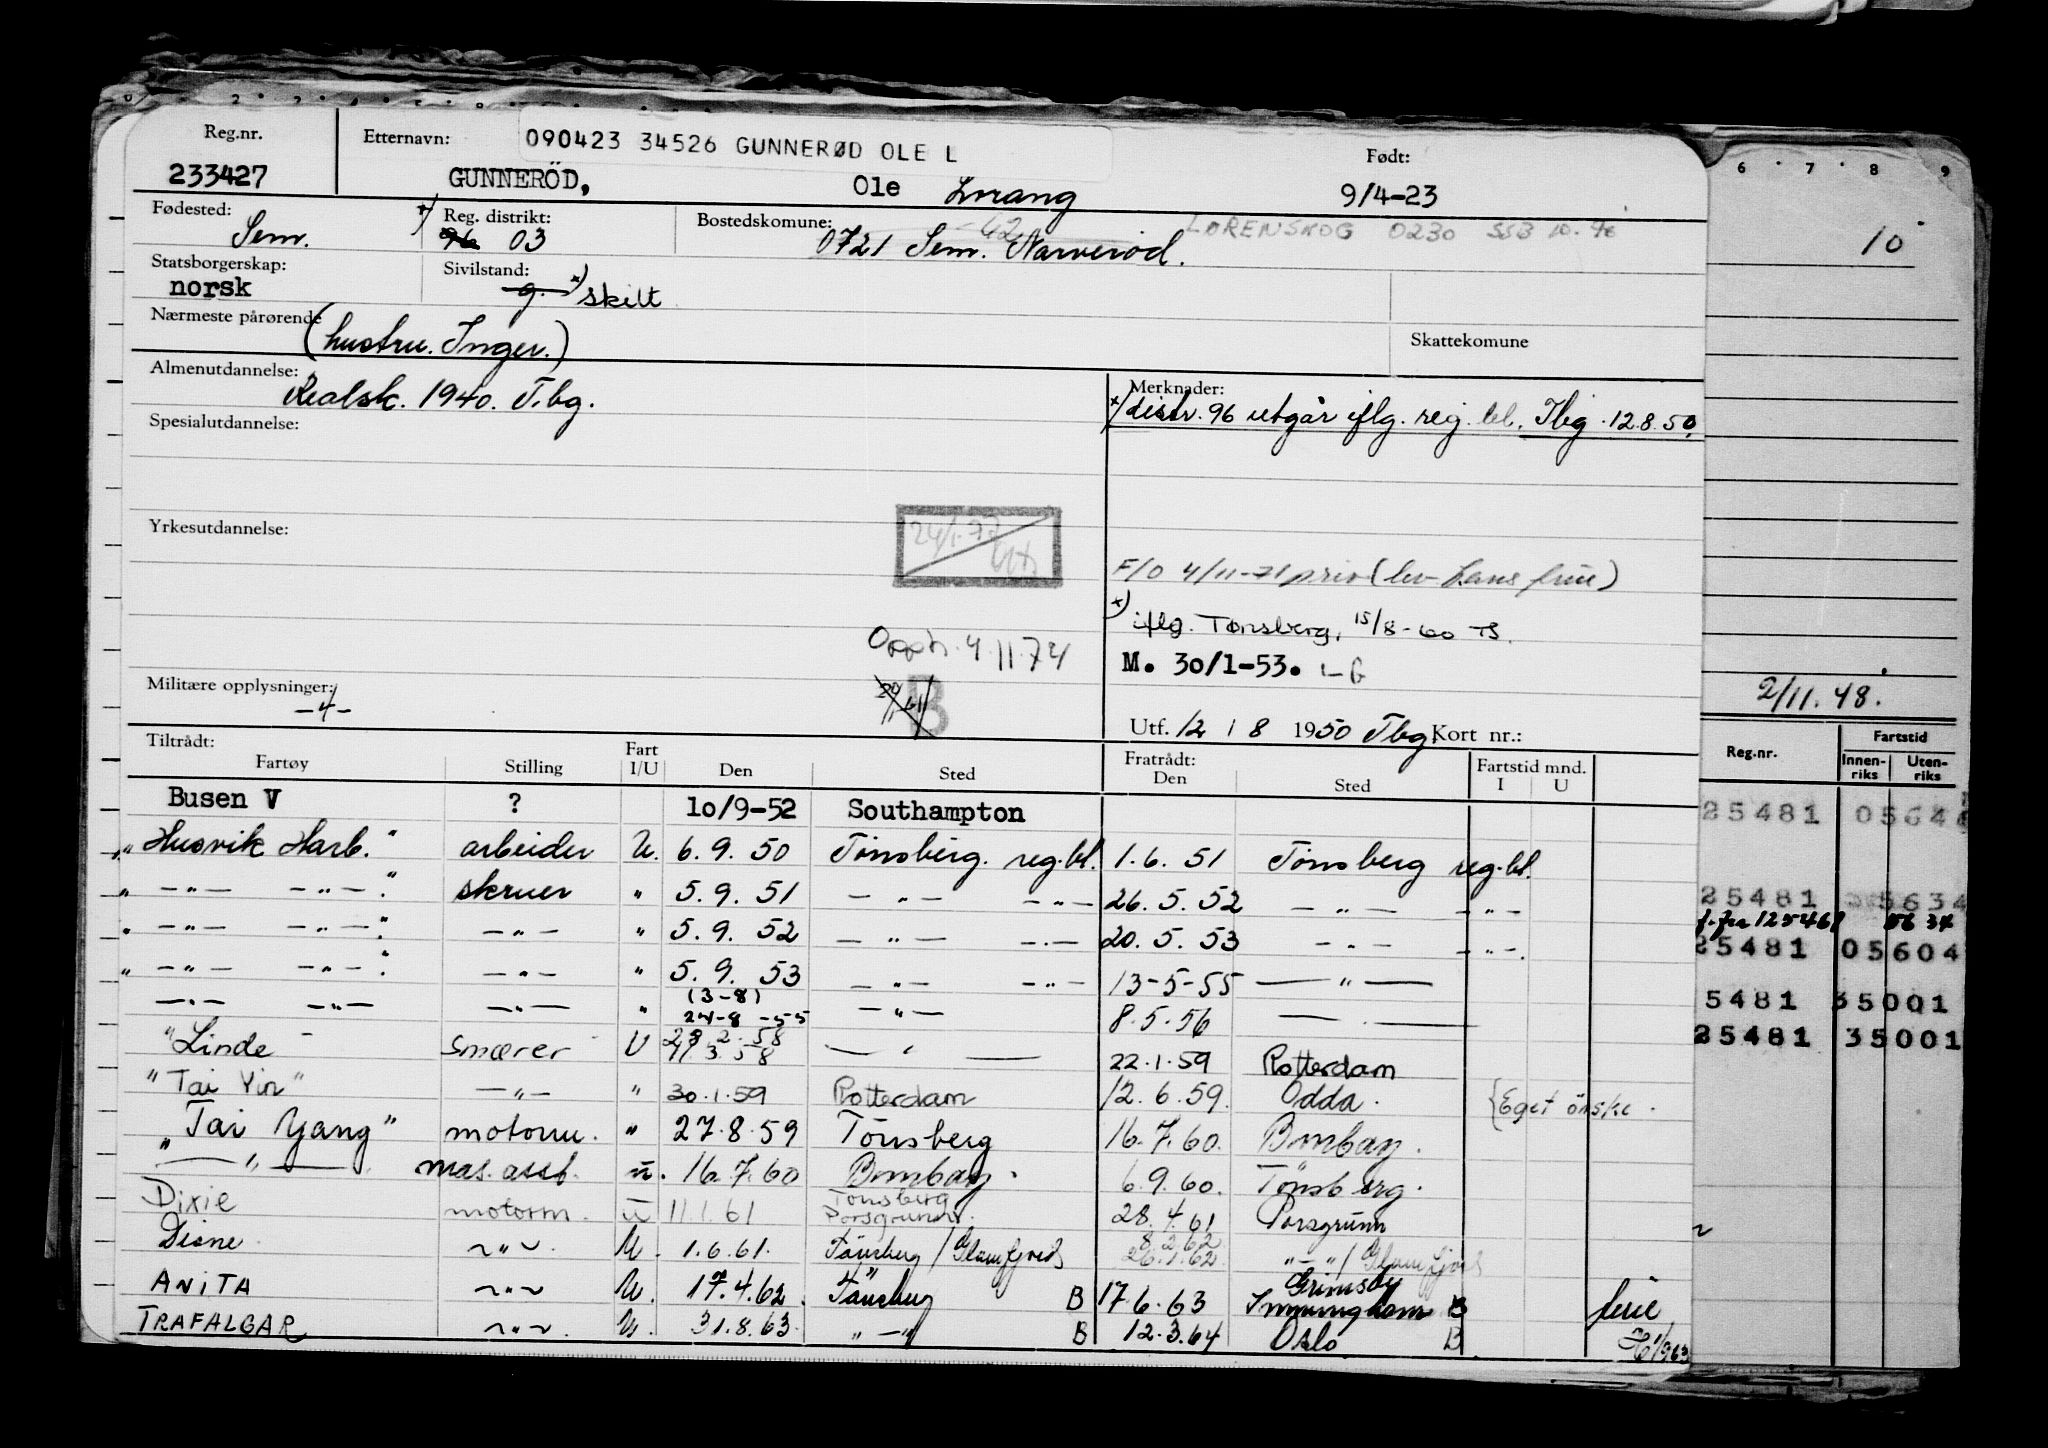 Reg.nr.
233427
Etternavn:
090423 34526 GUNNERØD OLE L
GUNNERÖD, Ole Lorang
Født:
9/4-23
Fødested:
Sem.
Reg. distrikt:
x) 96 03
Bostedskomune:
0721 Sem. Narverød.
LØRENSKOG 0230 SSB 10.
10
Statsborgerskap:
norsk
Sivilstand:
g. x) skilt
Nærmeste pårørende
(hustru. Inger.)
Skattekomune
Almenutdannelse:
Realsk. 1940. T.bg.
Merknader:
x) distr. 96 utgår iflg. reg. bl. Tbg. 12.8.50.
Spesialutdannelse:
Yrkesutdannelse:
24/1-77
F/O 4/11-71 priv (
x) iflg. Tønsberg, 15/8-60 TS.
Opph. 4.11.74
M. 30/1-53. LG
Militære opplysninger:
-4-
B
2/11.48.
Utf. 12 / 8 1950 Tbg. Kort nr.:
Tiltrådt:
Fartøy Stilling Fart I/U Den Sted Fratrådt: Den Sted Fartstid mnd. I U
Reg.nr. Fartstid Innen-riks Uten-riks
Busen V ? 10/9-52 Southampton
25481 0564
"Husvik Harb." arbeider U. 6.9.50 Tönsberg. reg.bl. 1.6.51 Tönsberg reg.bl.
" -"- -"-" skruer " 5.9.51 -"- -"- 26.5.52 -"- -"-
25481 05634
" -"- -"-" -"- " 5.9.52 -"- -"- 20.5.53 -"- -"-
25481 05604
" -"- -"-" -"- " 5.9.53 -"- -"- 13-5-55 -"-
5481 35001
-"- -"- -"- " (3-8) 24-8-55 -"- 8.5.56 -"-
25481 35001
"Linde" smører U 23.2.58 11.3.58 -"- 22.1.59 Rotterdam
"Tai Yin" -"- " 30.1.59 Rotterdam 12.6.59. Odda. {Eget önske.
"Tai Yang" motorm. " 27.8.59 Tönsberg 16.7.60. Bombay.
-"- mas.asst. u. 16.7.60 Bombay. 6.9.60. Tönsberg.
Dixie motorm. u 11.1.61 Tönsberg Porsgrunn. 28.4.61 Porsgrunn
Diane. -"- U. 1.6.61. Tönsberg / Glomfjord 8.2.62 26.1.62 -"-/ Glomfjord
ANITA -"- U. 17.4.62. Tönsberg B 17 6.63 Grimsby Immingham B ferie
TRAFALGAR -"- U. 31.8.63. "-" B 12.3.64 Oslo B